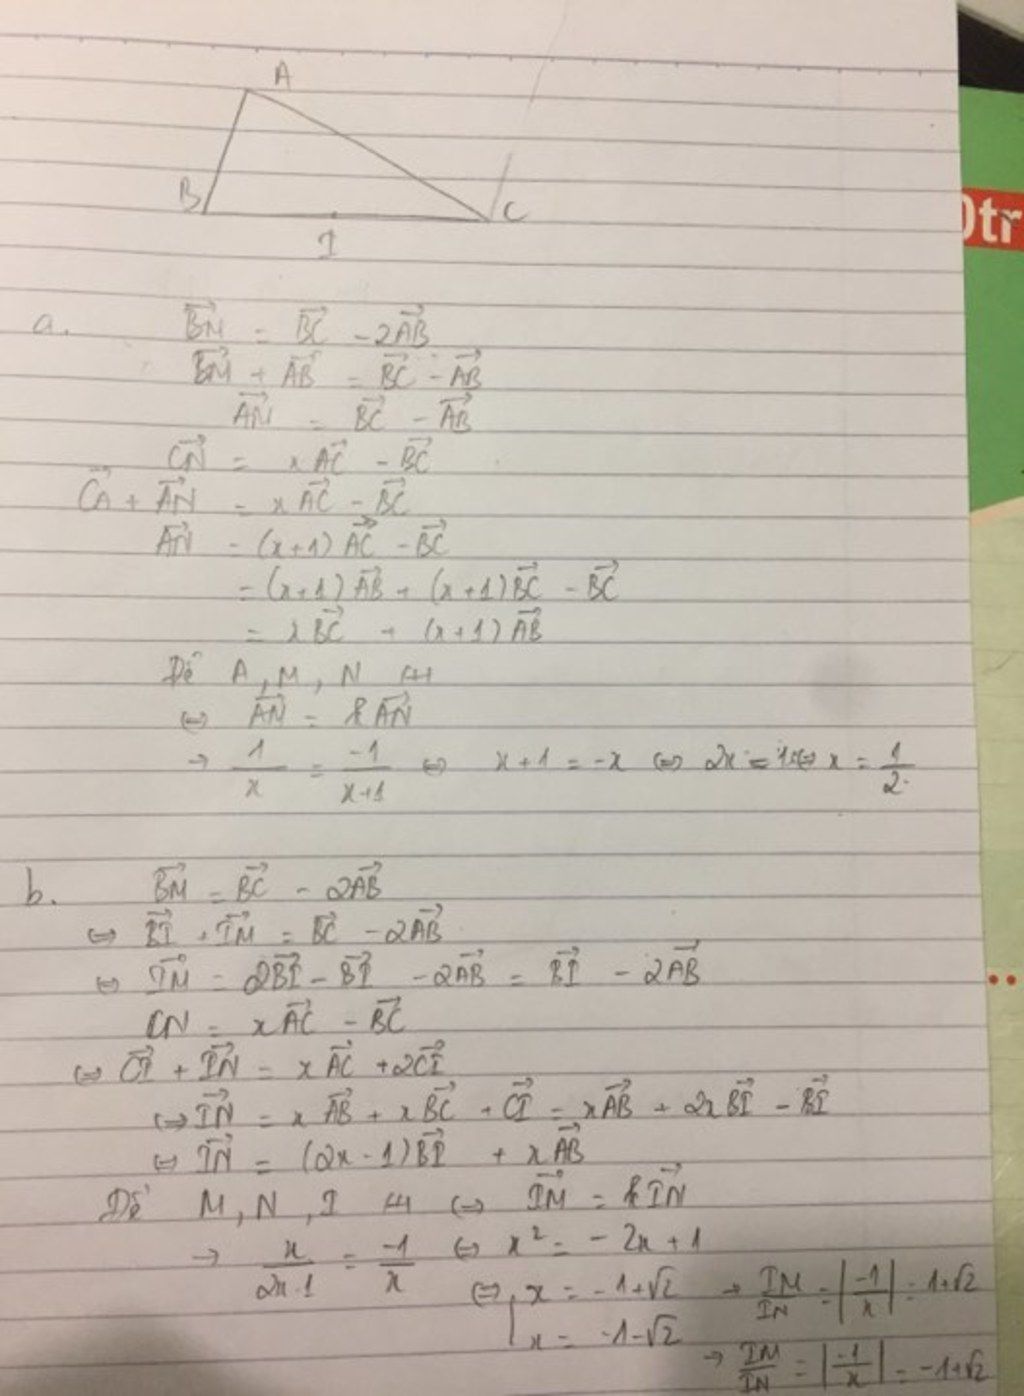 A
B
C
I
Otr
a. BM = BC - 2AB
BM + AB = BC - AB
AM = BC - AB
CN = xAC - BC
CA + AN = xAC - BC
AN = (x+1) AC - BC
= (x+1) AB + (x+1) BC - BC
= xBC + (x+1) AB
Để A, M, N
⇔ AM = kAN
→ 1/x = -1/(x+1) ⇔ x+1 = -x ⇔ 2x = ⇔ x = 1/2
b. BM = BC - 2AB
⇔ BI + IM = BC - 2AB
⇔ IM = 2BI - BI - 2AB = BI - 2AB
CN = xAC - BC
⇔ CI + IN = xAC + 2CI
⇔ IN = xAB + xBC + CI = xAB + 2xBI - BI
⇔ IN = (2x-1)BI + xAB
Để M, N, I ⇔ IM = kIN
→ x/(2x-1) = -1/x ⇔ x² = -2x+1
⇔ x = -1+√2 → IM/IN = |-1/x| = 1+√2
x = -1-√2
→ IM/IN = |-1/x| = -1+√2